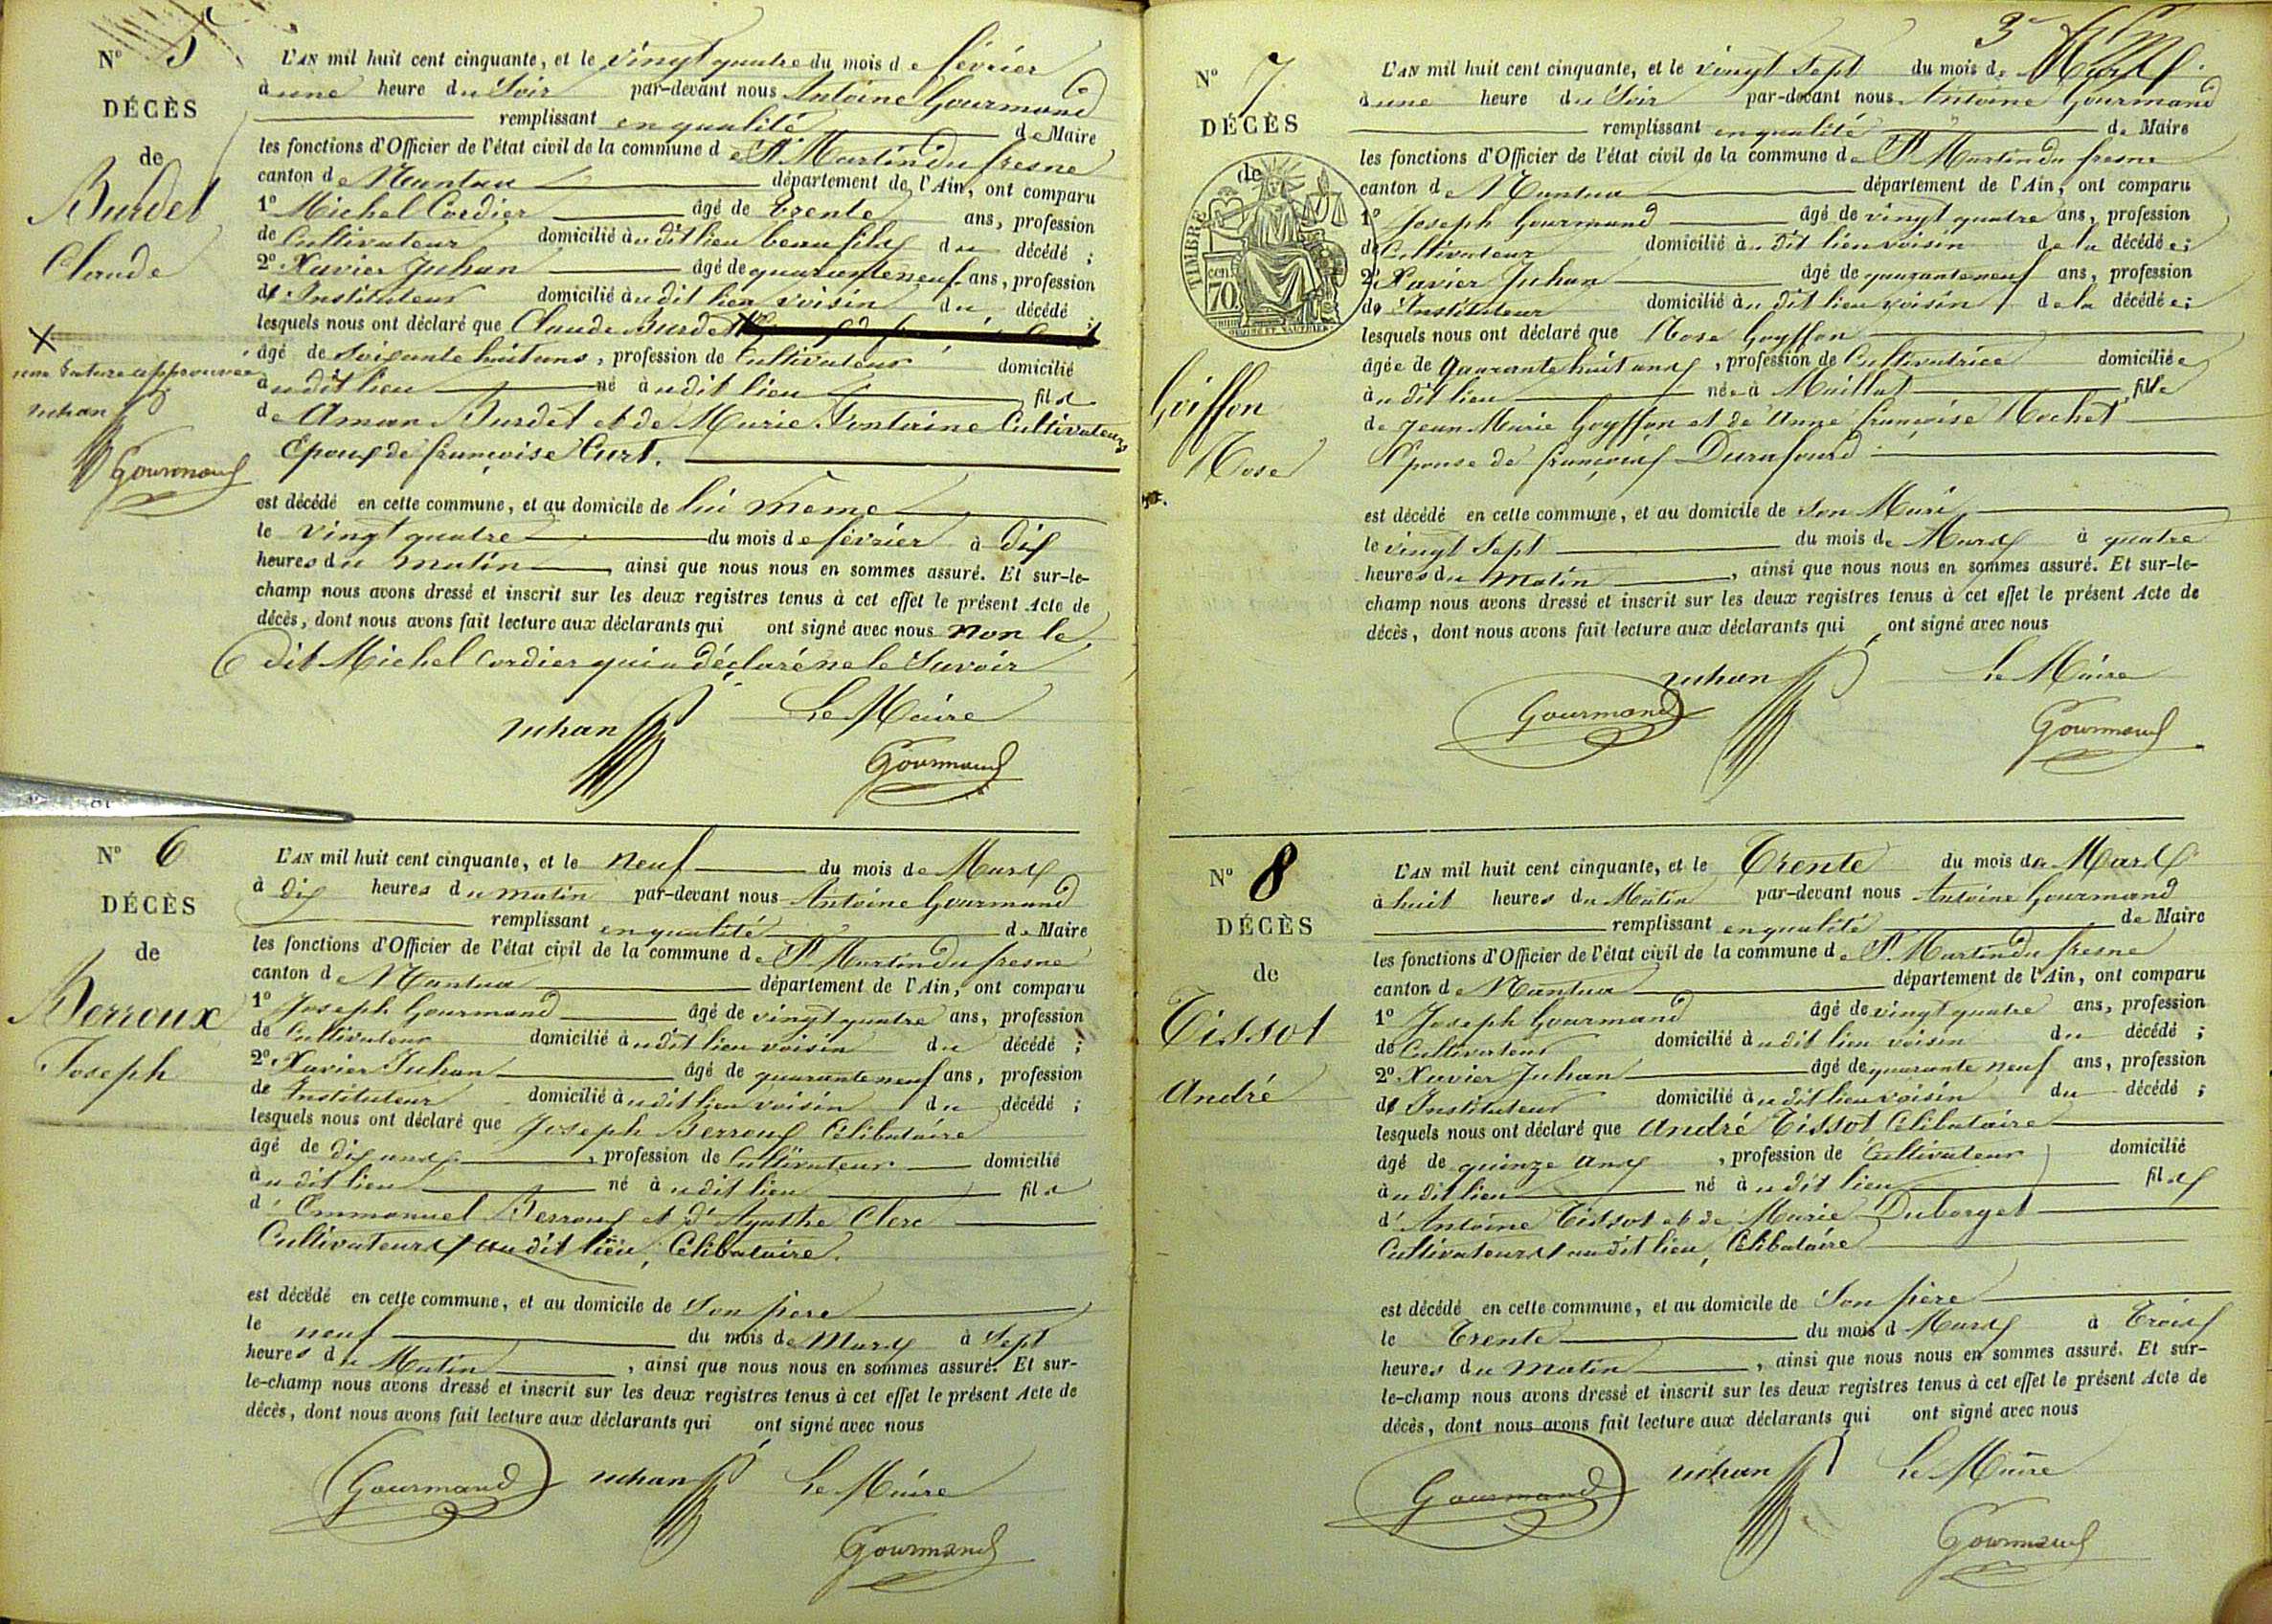 N° 5
DÉCÈS
de
Burdet
Claude
une rature approuvée
Juhan
Gourmand
L'AN mil huit cent cinquante, et le vingt quatre du mois de février
à une heure du Soir par-devant nous Antoine Gourmand
remplissant en qualité de Maire
les fonctions d'Officier de l'état civil de la commune de St Martin du fresne
canton de Nantua département de l'Ain, ont comparu
1° Michel Cordier âgé de trente ans, profession
de Cultivateur domicilié audit lieu beau fils du décédé ;
2° Xavier Juhan âgé de quarante neuf ans, profession
d' Instituteur domicilié audit lieu voisin du décédé ;
lesquels nous ont déclaré que Claude Burdet
âgé de soixante huit ans, profession de Cultivateur domicilié
audit lieu né audit lieu fils
de Aman Burdet et de Marie Fontaine Cultivateurs
Epoux de françoise Curt.
est décédé en cette commune, et au domicile de lui même
le vingt quatre du mois de février à dix
heures du matin, ainsi que nous nous en sommes assuré. Et sur-le-
champ nous avons dressé et inscrit sur les deux registres tenus à cet effet le présent Acte de
décès, dont nous avons fait lecture aux déclarants qui ont signé avec nous non le
dit Michel Cordier qui a déclaré ne le Savoir
Juhan Le Maire
Gourmand
N° 6
DÉCÈS
de
Berroux
Joseph
L'AN mil huit cent cinquante, et le neuf du mois de Mars
à dix heures du matin par-devant nous Antoine Gourmand
remplissant en qualité de Maire
les fonctions d'Officier de l'état civil de la commune de St Martin du fresne
canton de Nantua département de l'Ain, ont comparu
1° Joseph Gourmand âgé de vingt quatre ans, profession
de Cultivateur domicilié audit lieu voisin du décédé ;
2° Xavier Juhan âgé de quarante neuf ans, profession
de Instituteur domicilié audit lieu voisin du décédé ;
lesquels nous ont déclaré que Joseph Berroux Célibataire
âgé de dix ans, profession de Cultivateur domicilié
audit lieu né audit lieu fils
d' Emmanuel Berroux et d'Agathe Clerc
Cultivateurs audit lieu, Célibataire.
est décédé en cette commune, et au domicile de Son père
le neuf du mois de Mars à Sept
heures du Matin, ainsi que nous nous en sommes assuré. Et sur-
le-champ nous avons dressé et inscrit sur les deux registres tenus à cet effet le présent Acte de
décès, dont nous avons fait lecture aux déclarants qui ont signé avec nous
Gourmand Juhan Le Maire
Gourmand
3e
N° 7
DÉCÈS
de
TIMBRE
70 cent
Goiffon
Rose
L'AN mil huit cent cinquante, et le vingt Sept du mois de Mars
à une heure du Soir par-devant nous Antoine Gourmand
remplissant en qualité de Maire
les fonctions d'Officier de l'état civil de la commune de St Martin du fresne
canton de Nantua département de l'Ain, ont comparu
1° Joseph Gourmand âgé de vingt quatre ans, profession
de Cultivateur domicilié audit lieu voisin de la décédée ;
2° Xavier Juhan âgé de quarante neuf ans, profession
d' Instituteur domicilié audit lieu voisin de la décédée ;
lesquels nous ont déclaré que Rose Goyffon
âgée de Quarante huit ans, profession de Cultivatrice domiciliée
audit lieu née à Maillat, fille
de Jean Marie Goyffon et de Anne françoise Rochet
Epouse de françois Durafourd
est décédé en cette commune, et au domicile de Son Mari
le vingt Sept du mois de Mars à quatre
heures du Matin, ainsi que nous nous en sommes assuré. Et sur-le-
champ nous avons dressé et inscrit sur les deux registres tenus à cet effet le présent Acte de
décès, dont nous avons fait lecture aux déclarants qui ont signé avec nous
Gourmand Juhan Le Maire
Gourmand
N° 8
DÉCÈS
de
Tissot
André
L'AN mil huit cent cinquante, et le Trente du mois de Mars
à huit heures du Matin par-devant nous Antoine Gourmand
remplissant en qualité de Maire
les fonctions d'Officier de l'état civil de la commune de St Martin du fresne
canton de Nantua département de l'Ain, ont comparu
1° Joseph Gourmand âgé de vingt quatre ans, profession
de Cultivateur domicilié audit lieu voisin du décédé ;
2° Xavier Juhan âgé de quarante neuf ans, profession
d' Instituteur domicilié audit lieu voisin du décédé ;
lesquels nous ont déclaré que André Tissot Célibataire
âgé de quinze ans, profession de Cultivateur domicilié
audit lieu né audit lieu fils
d' Antoine Tissot et de Marie Duborget
Cultivateurs audit lieu, Célibataire
est décédé en cette commune, et au domicile de Son père
le Trente du mois d Mars à Trois
heures du matin, ainsi que nous nous en sommes assuré. Et sur-
le-champ nous avons dressé et inscrit sur les deux registres tenus à cet effet le présent Acte de
décès, dont nous avons fait lecture aux déclarants qui ont signé avec nous
Gourmand Juhan Le Maire
Gourmand